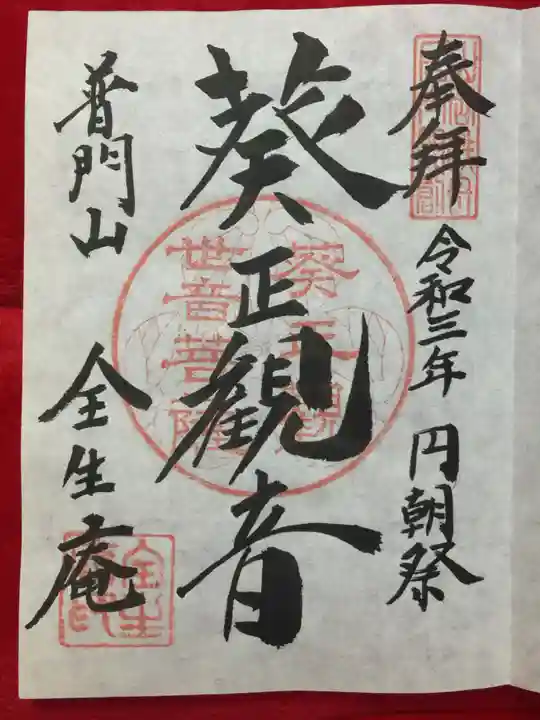 奉拝
令和三年 円朝祭
葵正観音
葵正観
世音菩薩
普門山
全生庵